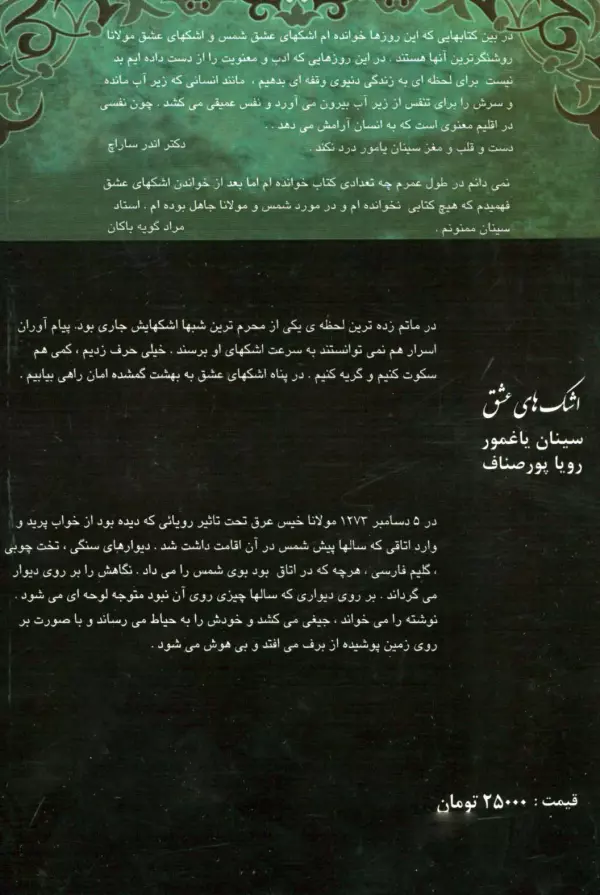 در بین کتابهایی که این روزها خوانده ام اشکهای عشق شمس و اشکهای عشق مولانا
روشنگرترین آنها هستند . در این روزهایی که ادب و معنویت را از دست داده ایم بد
نیست برای لحظه ای به زندگی دنیوی وقفه ای بدهیم ، مانند انسانی که زیر آب مانده
و سرش را برای تنفس از زیر آب بیرون می آورد و نفس عمیقی می کشد . چون نفسی
در اقلیم معنوی است که به انسان آرامش می دهد . .
دست و قلب و مغز سینان یامور درد نکند . دکتر اندر ساراچ
نمی دانم در طول عمرم چه تعدادی کتاب خوانده ام اما بعد از خواندن اشکهای عشق
فهمیدم که هیچ کتابی نخوانده ام و در مورد شمس و مولانا جاهل بوده ام . استاد
سینان ممنونم . مراد گویه باکان
در ماتم زده ترین لحظه ی یکی از محرم ترین شبها اشکهایش جاری بود. پیام آوران
اسرار هم نمی توانستند به سرعت اشکهای او برسند . خیلی حرف زدیم ، کمی هم
سکوت کنیم و گریه کنیم . در پناه اشکهای عشق به بهشت گمشده امان راهی بیابیم .
اشک های عشق
سینان یاغمور
رویا پورصناف
در ۵ دسامبر ۱۲۷۳ مولانا خیس عرق تحت تاثیر رویائی که دیده بود از خواب پرید و
وارد اتاقی که سالها پیش شمس در آن اقامت داشت شد . دیوارهای سنگی ، تخت چوبی
، گلیم فارسی ، هرچه که در اتاق بود بوی شمس را می داد . نگاهش را بر روی دیوار
می گرداند . بر روی دیواری که سالها چیزی روی آن نبود متوجه لوحه ای می شود .
نوشته را می خواند ، جیغی می کشد و خودش را به حیاط می رساند و با صورت بر
روی زمین پوشیده از برف می افتد و بی هوش می شود .
قیمت : ۲۵۰۰۰ تومان